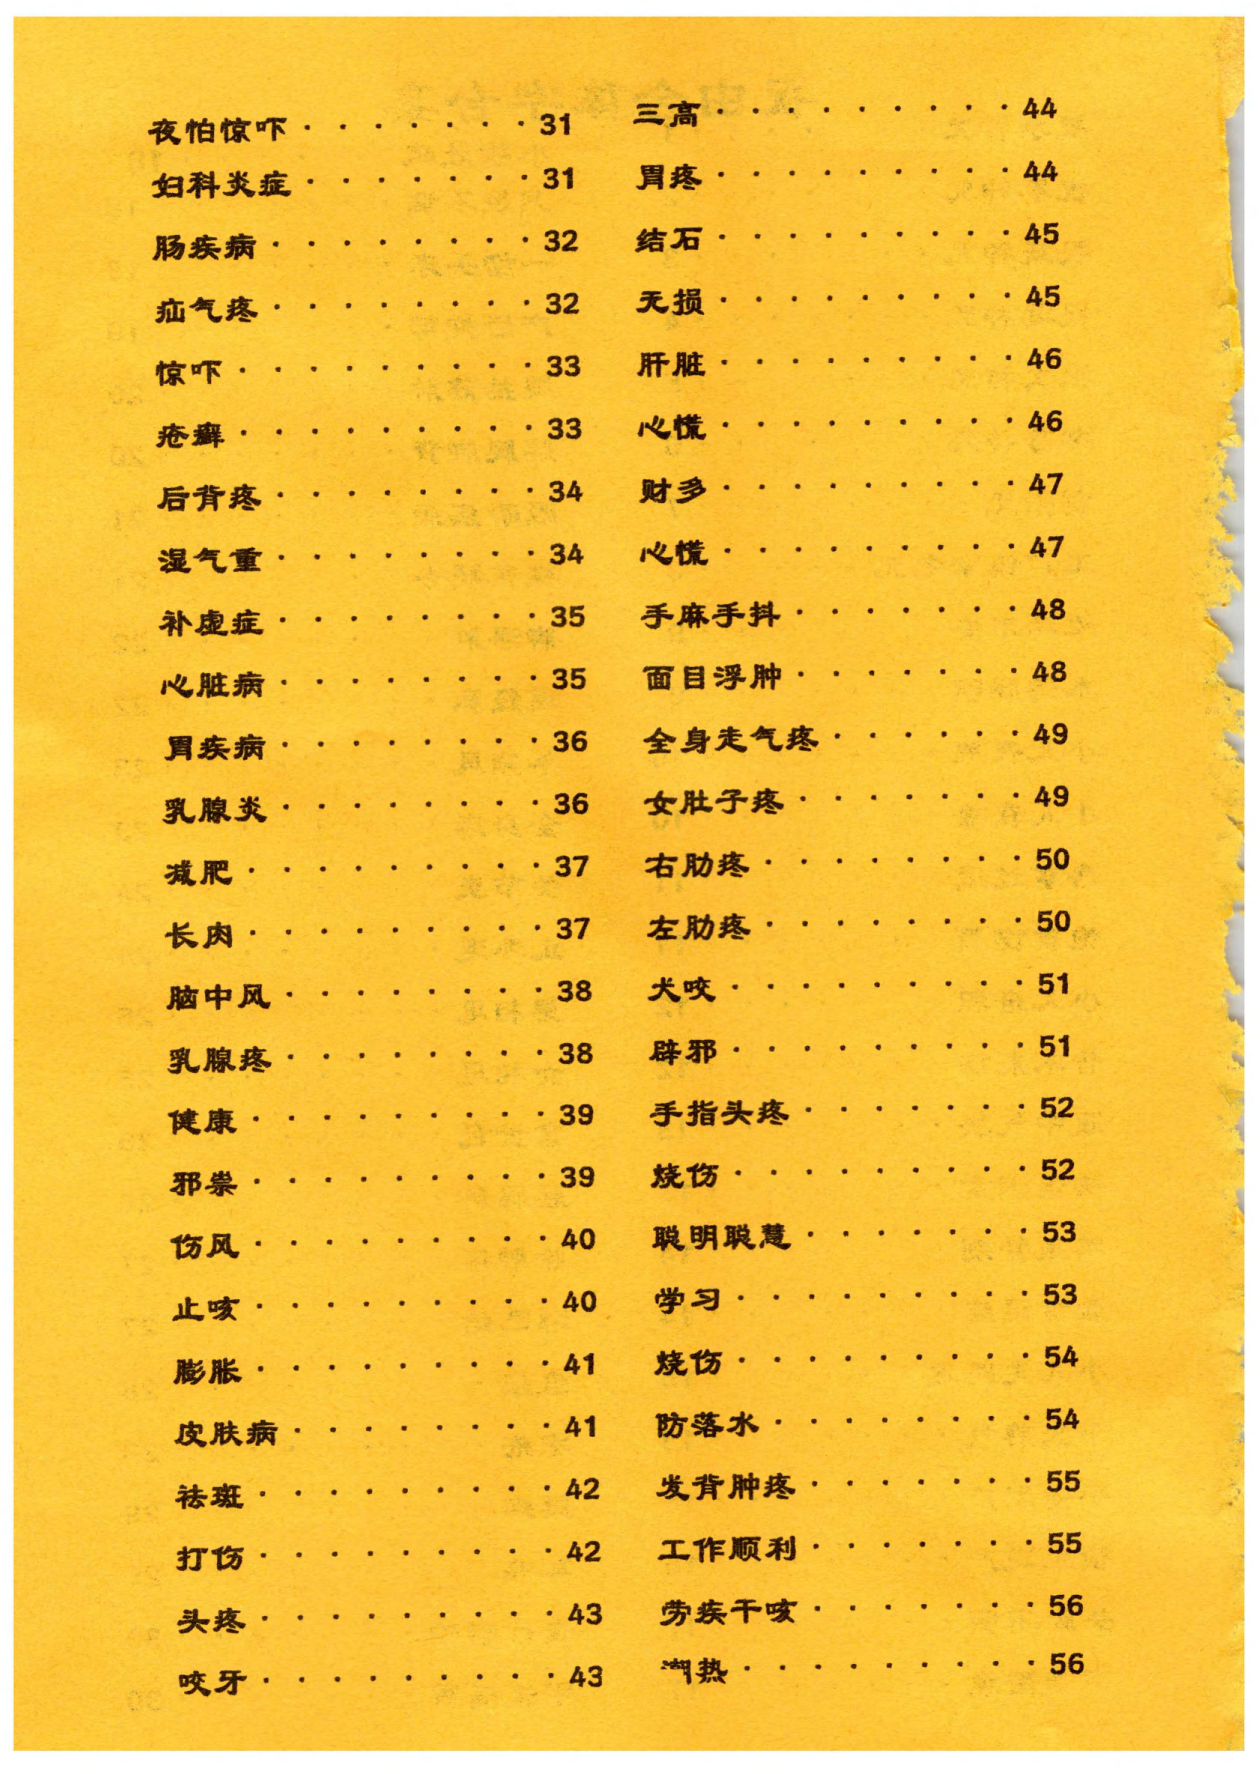 夜怕惊吓········31
妇科炎症·······31
肠疾病········32
疝气疼········32
惊吓·········33
疮癣·········33
后背疼········34
湿气重········34
补虚症········35
心脏病········35
胃疾病········36
乳腺炎········36
减肥·········37
长肉·········37
脑中风········38
乳腺疼········38
健康·········39
邪祟·········39
伤风·········40
止咳·········40
膨胀·········41
皮肤病········41
祛斑·········42
打伤·········42
头疼·········43
咬牙·········43
三高·········44
胃疼·········44
结石·········45
无损·········45
肝脏·········46
心慌·········46
财多·········47
心慌·········47
手麻手抖·······48
面目浮肿·······48
全身走气疼······49
女肚子疼·······49
右肋疼········50
左肋疼········50
犬咬·········51
辟邪·········51
手指头疼·······52
烧伤·········52
聪明聪慧·······53
学习·········53
烧伤·········54
防落水········54
发背肿疼·······55
工作顺利·······55
劳疾干咳·······56
潮热·········56